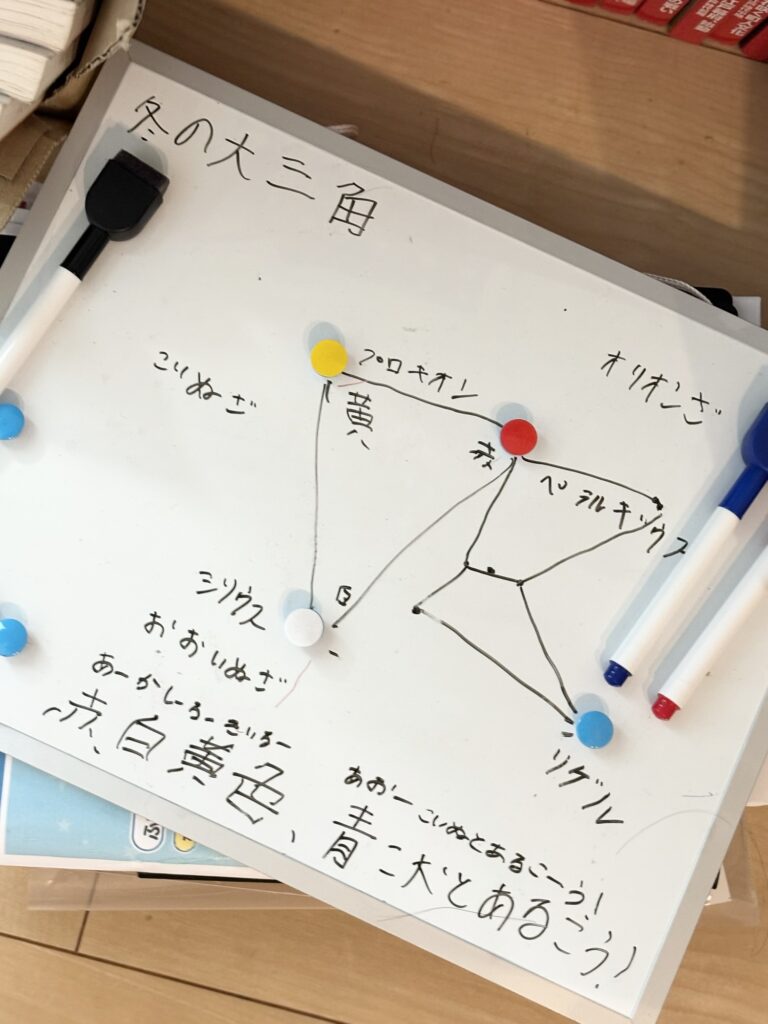 冬の大三角
こいぬざ
プロキオン
黄
オリオンざ
赤
ペテルギウス
シリウス
白
おおいぬざ
リゲル
あーかしーろーきいろー
赤、白、黄色、
あおーこいぬとあるこーう!
青二犬とあるこう!